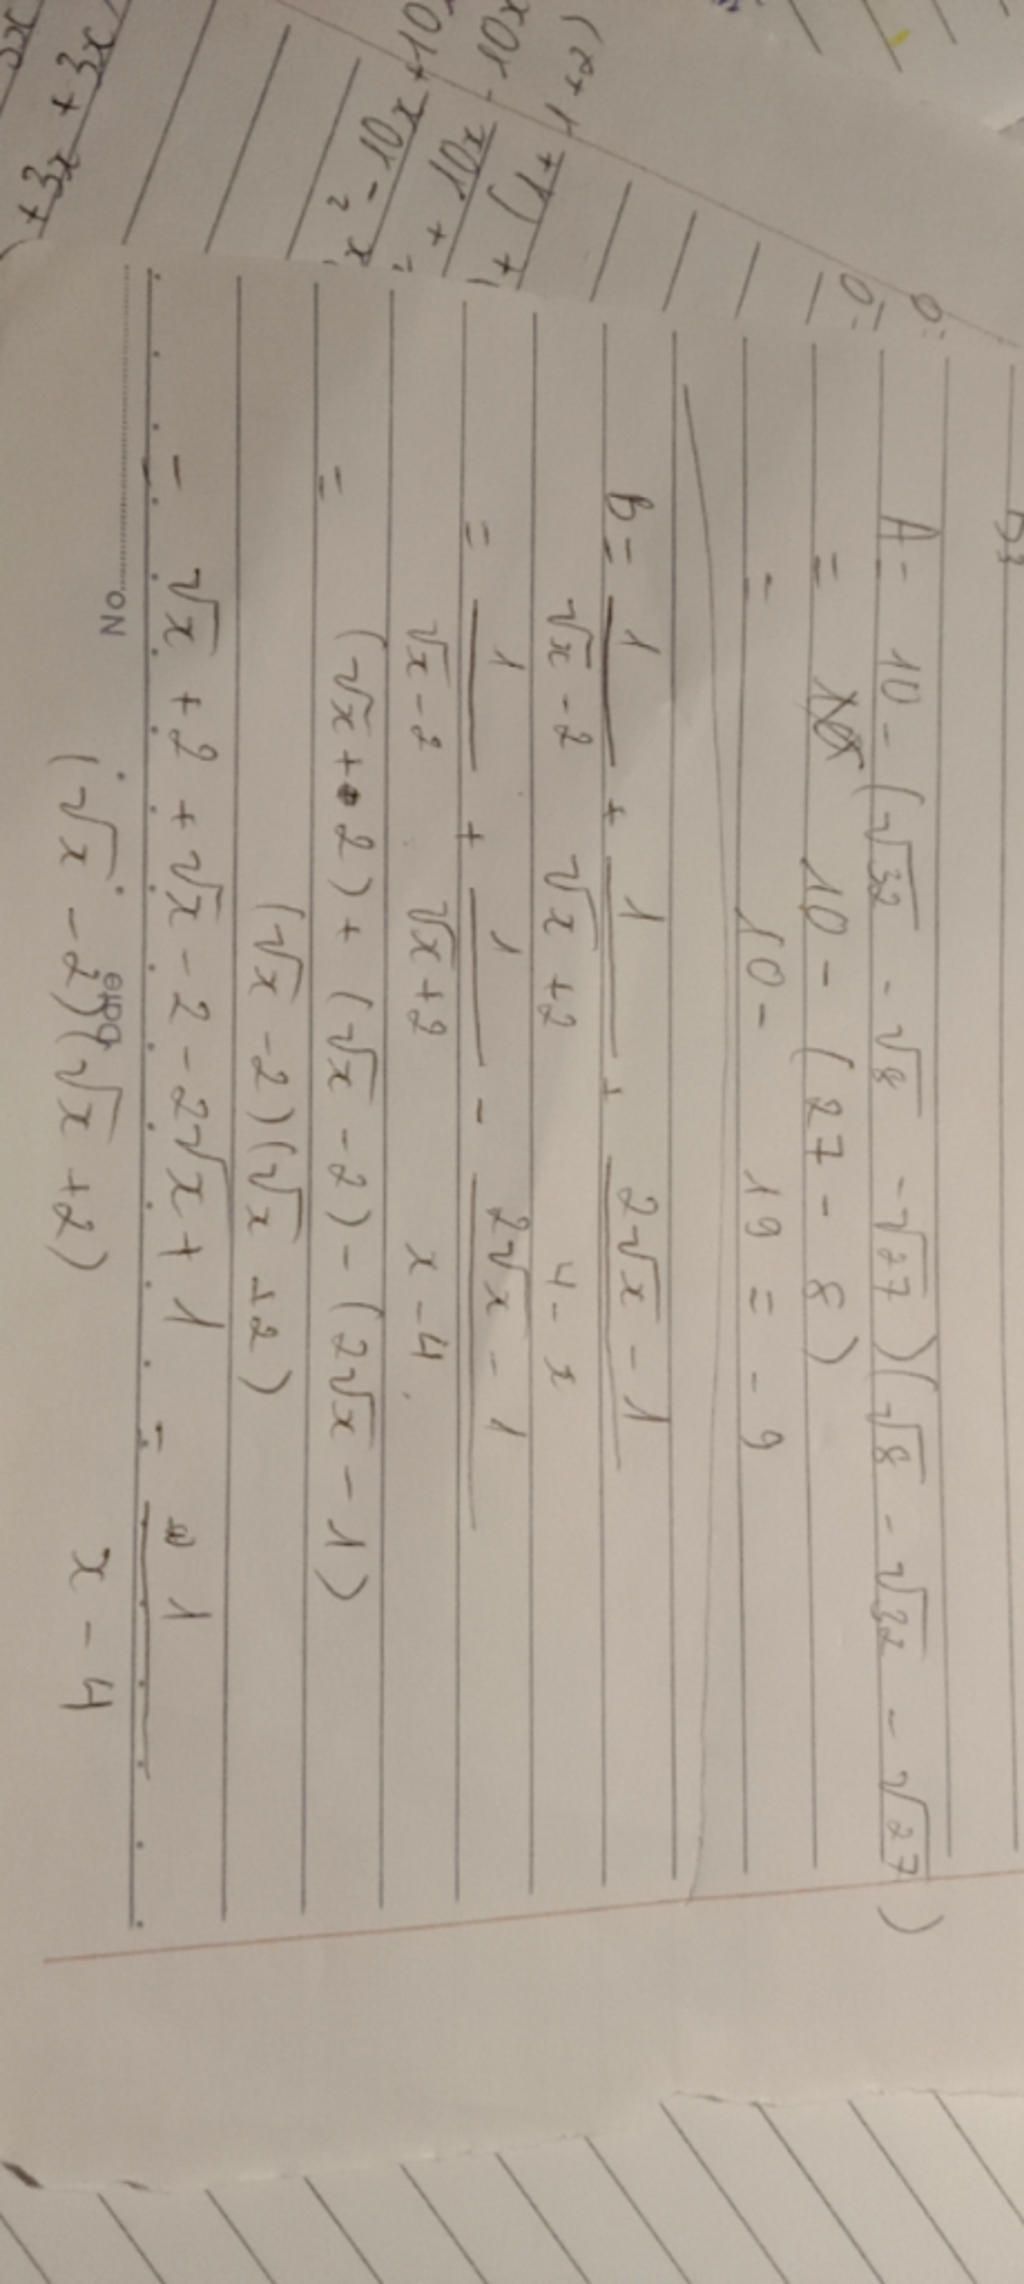 B3
A = 10 - (√32 - √8 - √27)(√8 - √32 - √27)
= 10 - (27 - 8)
= 10 - 19 = -9
B = 1/(√x - 2) + 1/(√x + 2) + (2√x - 1)/(4 - x)
= 1/(√x - 2) + 1/(√x + 2) - (2√x - 1)/(x - 4)
= ((√x + 2) + (√x - 2) - (2√x - 1))/((√x - 2)(√x + 2))
= (√x + 2 + √x - 2 - 2√x + 1)/((√x - 2)(√x + 2)) = 1/(x - 4)
No
Date
+ 3x + 3x
x² - 10x + 10
= + 10x - 10x